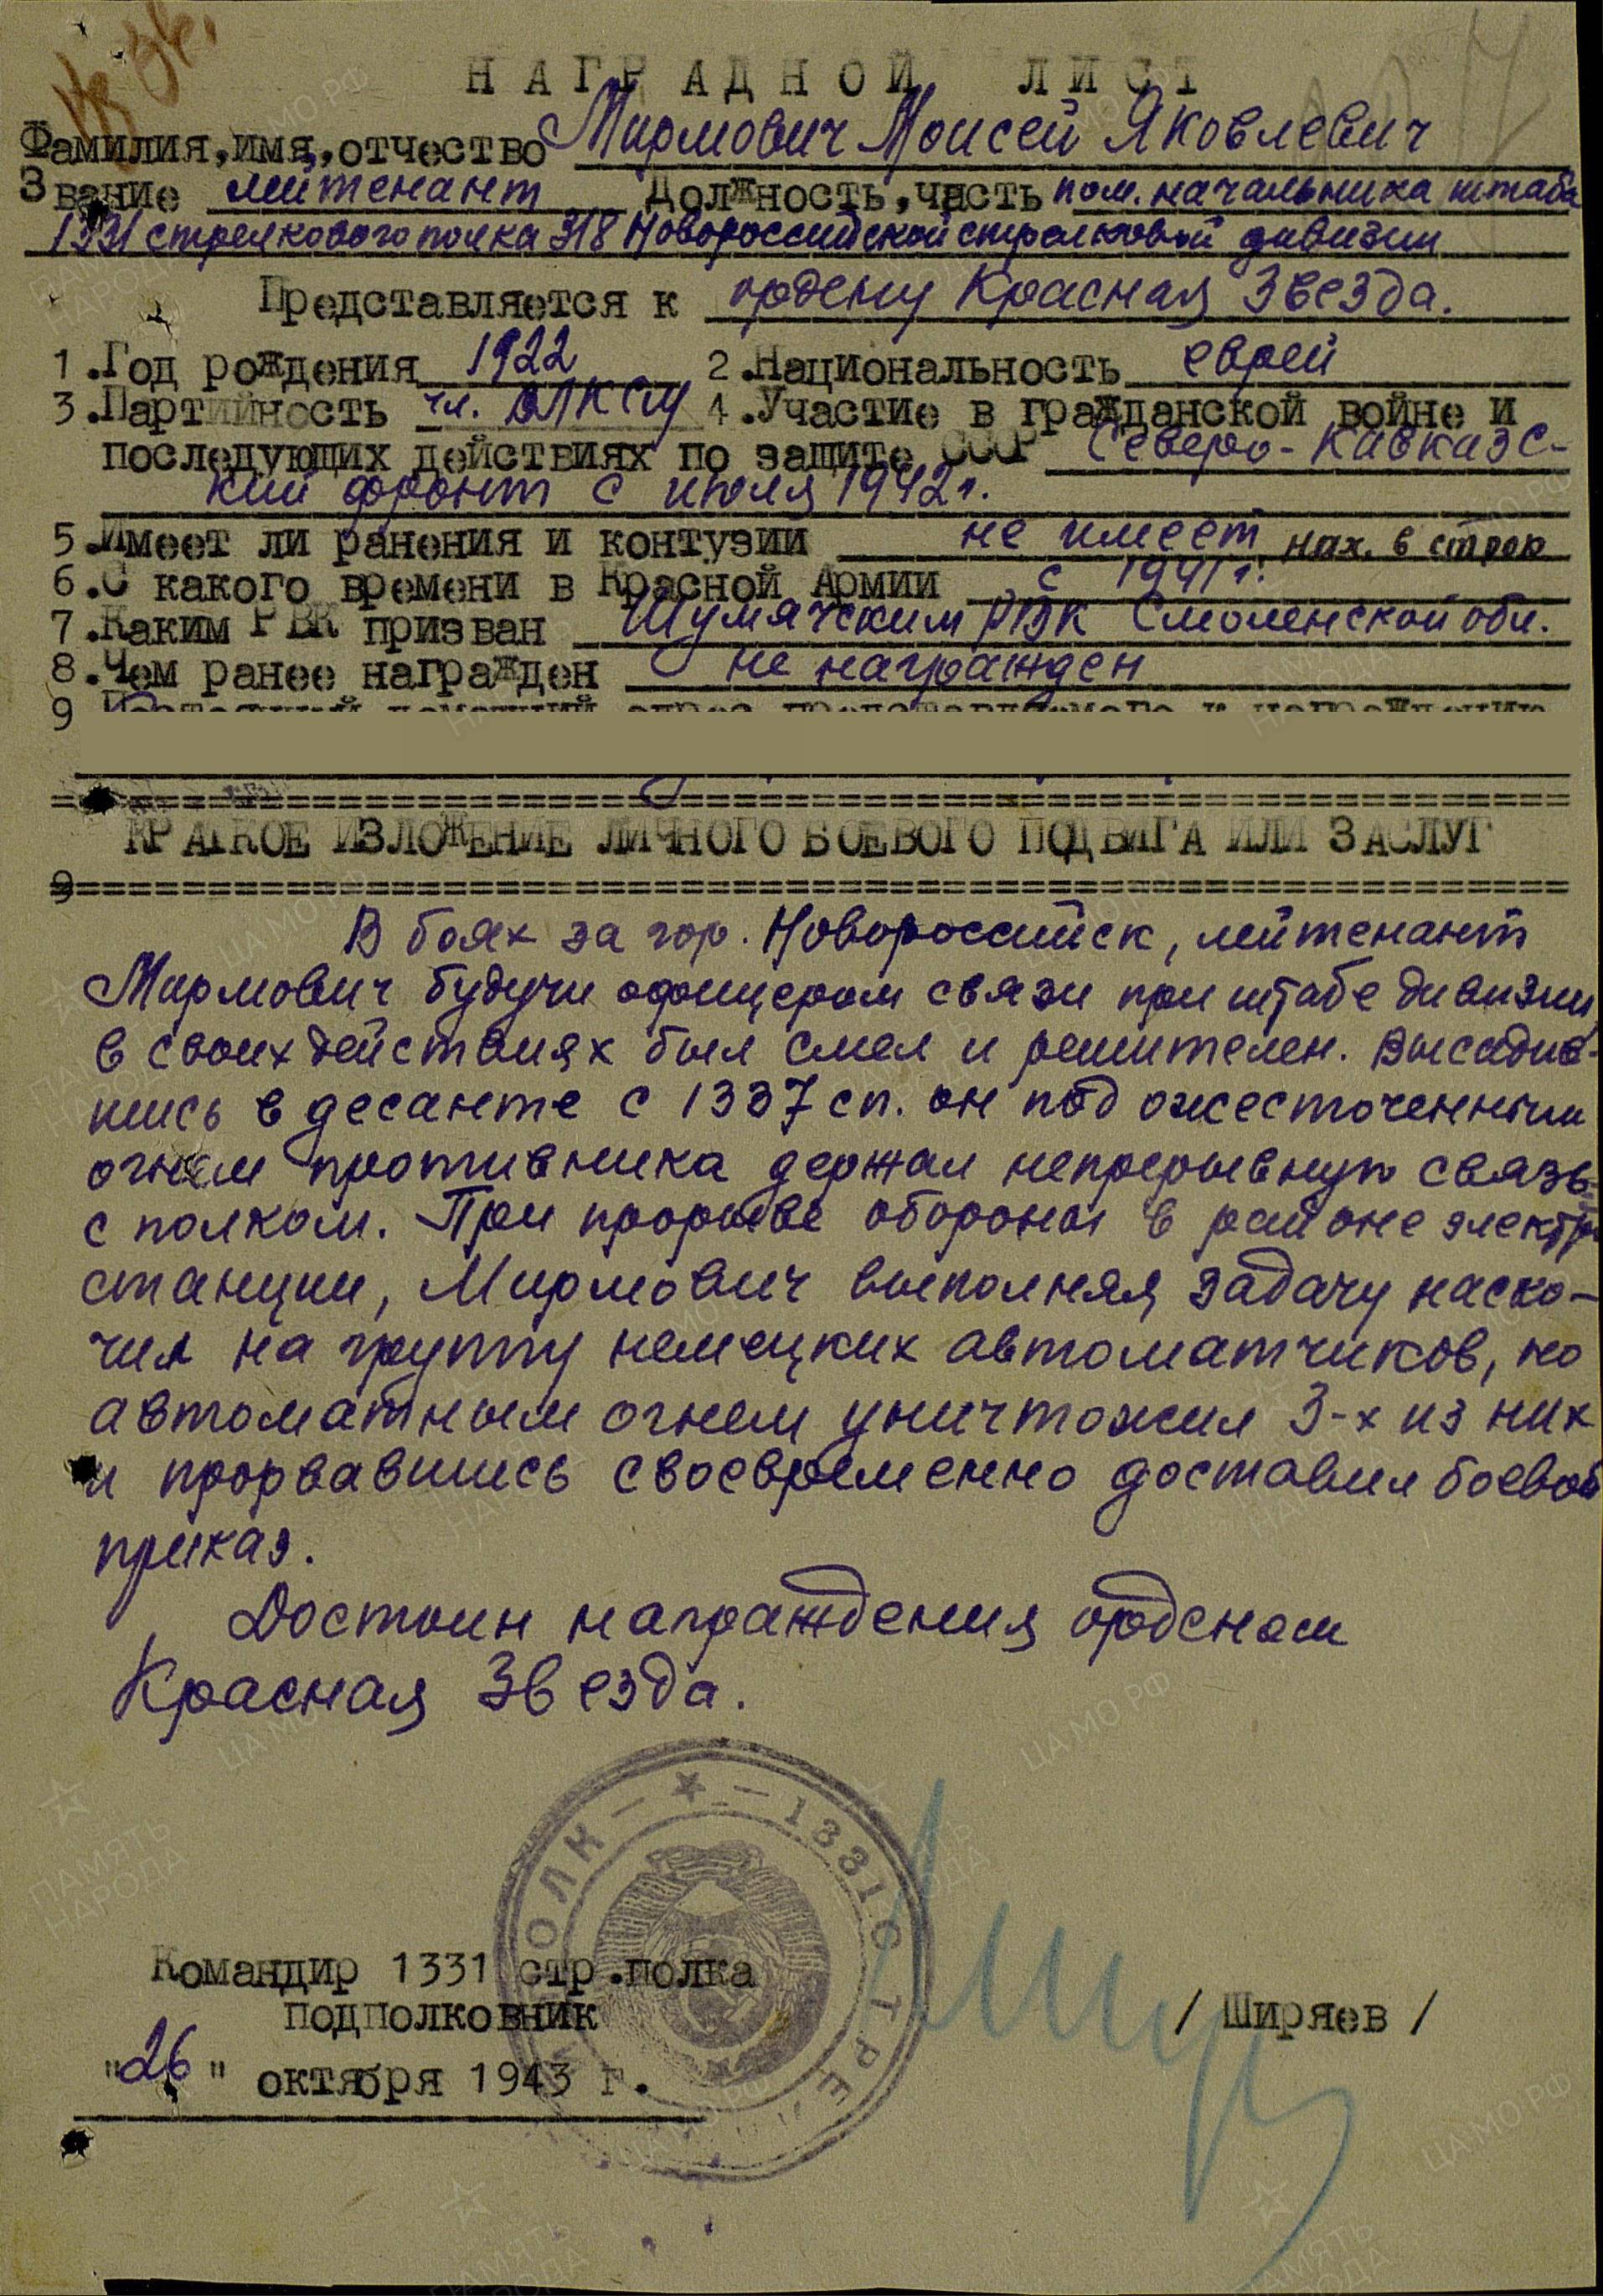 НАГРАДНОЙ ЛИСТ
Фамилия, имя, отчество Мирмович Моисей Яковлевич
Звание лейтенант Должность, часть пом. начальника штаба
1331 стрелкового полка 318 Новороссийской стрелковой дивизии
Представляется к ордену Красная Звезда.
1. Год рождения 1922 2. Национальность еврей
3. Партийность чл. ВЛКСМ 4. Участие в гражданской войне и
последующих действиях по защите СССР Северо-Кавказс-
кий фронт с июля 1942 г.
5. Имеет ли ранения и контузии не имеет нах. в строю
6. С какого времени в Красной Армии с 1941 г.
7. Каким РВК призван Шумячским РВК Смоленской обл.
8. Чем ранее награжден не награжден
9
КРАТКОЕ ИЗЛОЖЕНИЕ ЛИЧНОГО БОЕВОГО ПОДВИГА ИЛИ ЗАСЛУГ
В боях за гор. Новороссийск, лейтенант
Мирмович будучи офицером связи при штабе дивизии,
в своих действиях был смел и решителен. Высадив-
шись в десанте с 1337 сп. он под ожесточенным
огнем противника держал непрерывную связь
с полком. При прорыве обороны в районе электро
станции, Мирмович выполняя задачу наско-
чил на группу немецких автоматчиков, но
автоматным огнем уничтожил 3-х из них
и прорвавшись своевременно доставил боевой
приказ.
Достоин награждения орденом
Красная Звезда.
ПОЛК — ★ — 1331 СТРЕ
Командир 1331 стр. полка
подполковник / Ширяев /
"26" октября 1943 г.
ПАМЯТЬ НАРОДА
ЦА МО РФ